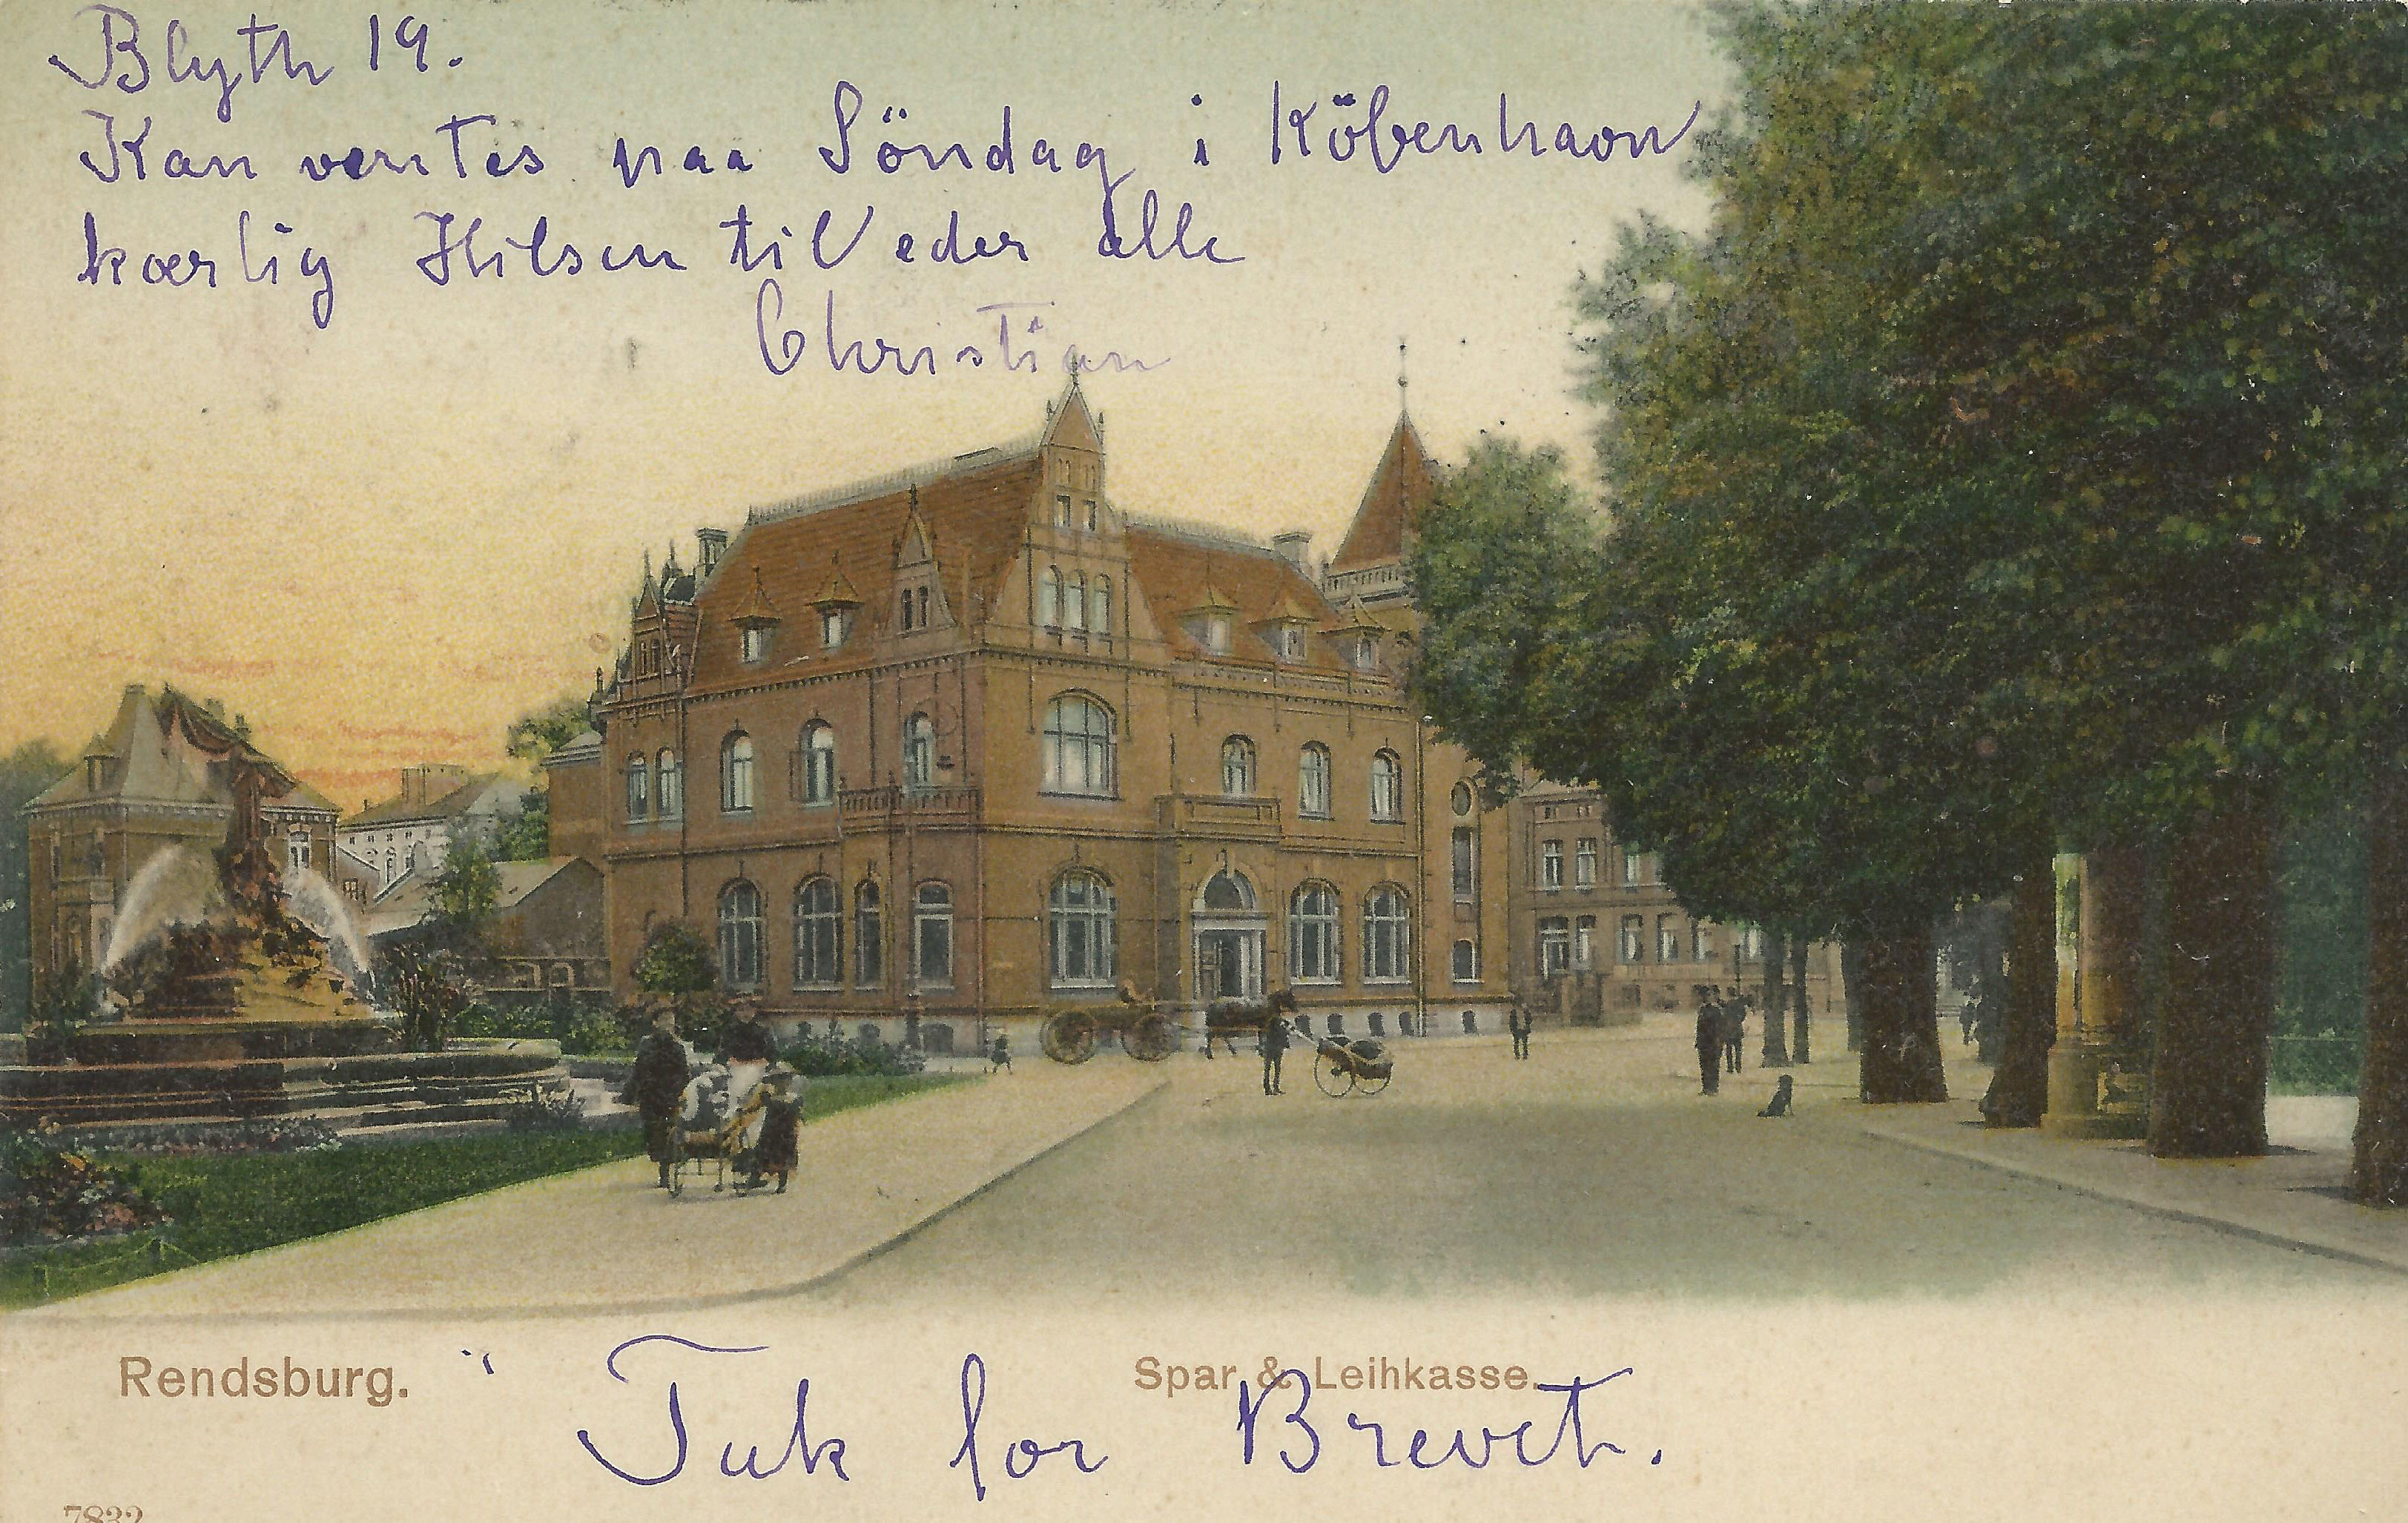 Blyth 19.
Kan ventes paa Söndag i Köbenhavn
kærlig Hilsen til eder alle
Christian
Rendsburg.
Spar & Leihkasse.
Tak for Brevet.
7832